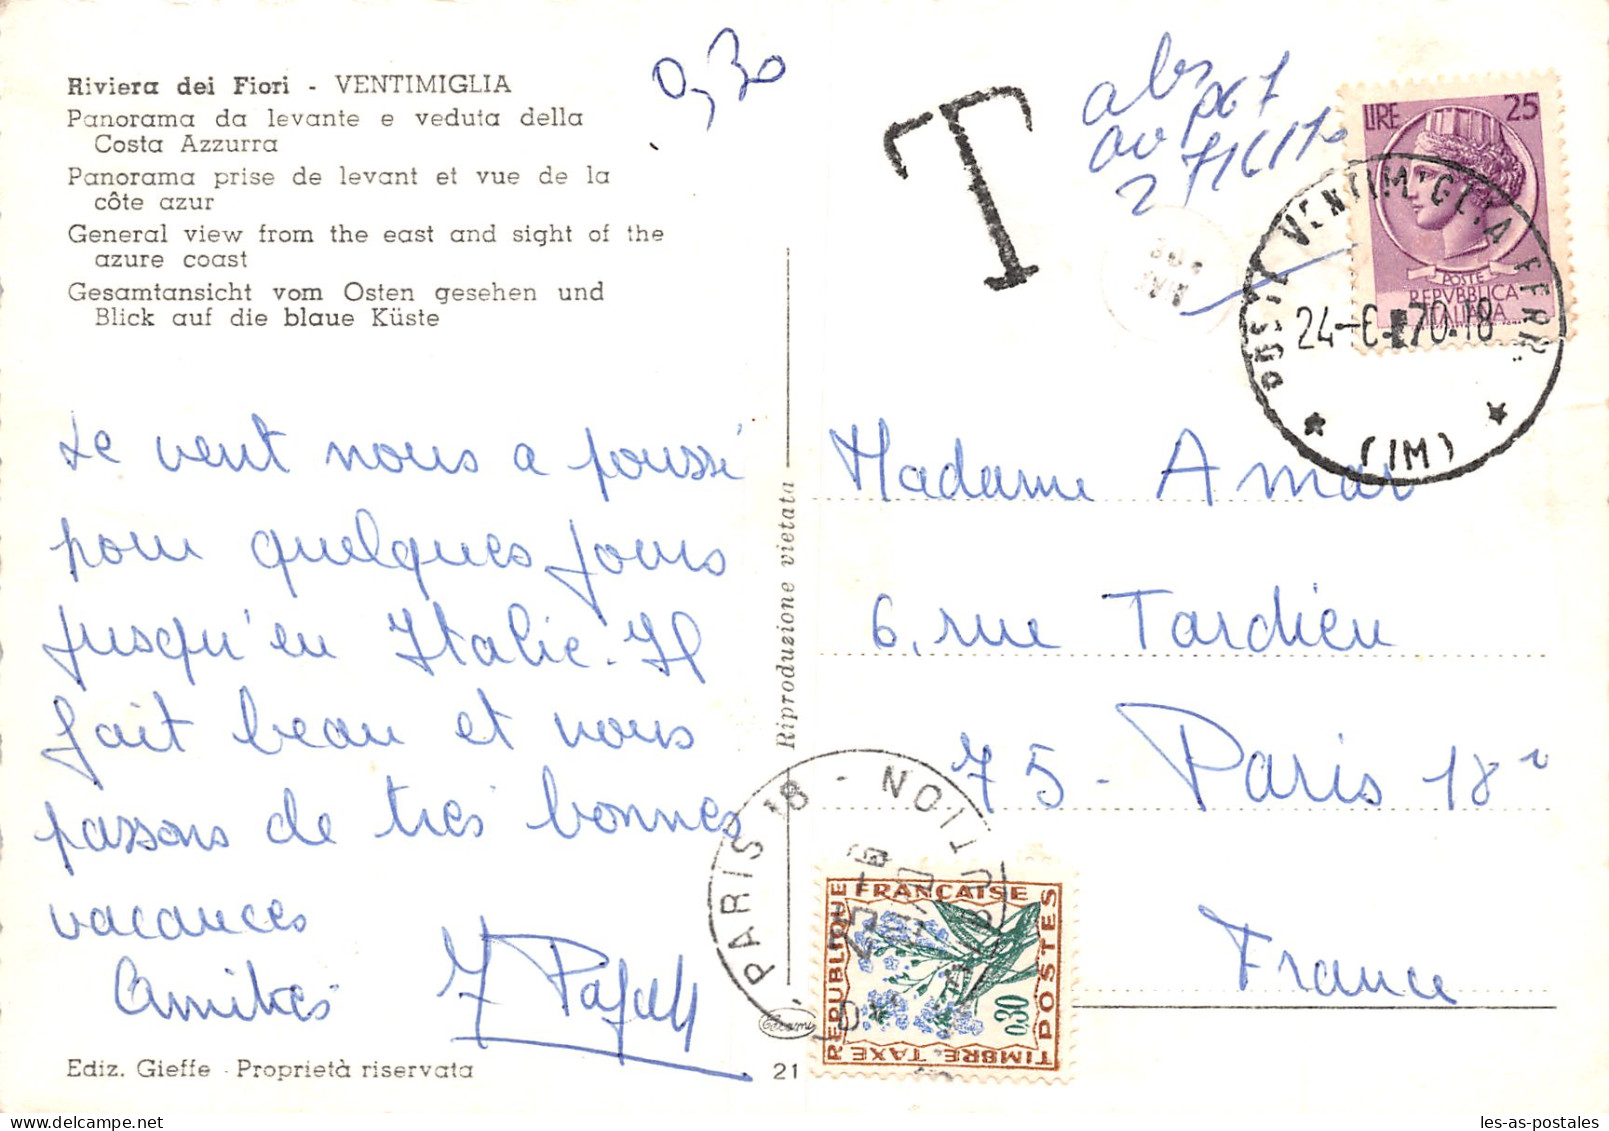 Riviera dei Fiori - VENTIMIGLIA
Panorama da levante e veduta della
Costa Azzurra
Panorama prise de levant et vue de la
côte azur
General view from the east and sight of the
azure coast
Gesamtansicht vom Osten gesehen und
Blick auf die blaue Küste
0,30
T
abs
LIRE 25
POSTE
REPVBBLICA
ITALIANA
POSTE VENTIMIGLIA FERR.
24-6-70.18
(IM)
Le vent nous a poussé
pour quelques jours
jusqu'en Italie. Il
fait beau et nous
passons de très bonnes
vacances
Amitiés
Riproduzione vietata
Madame Amar
6, rue Tardieu
75 - Paris 18e
France
PARIS 18 - DISTRIBUTION
25-6
REPUBLIQUE FRANÇAISE
POSTES
TIMBRE TAXE
0,30
Ediz. Gieffe - Proprietà riservata
21
les-as-postales